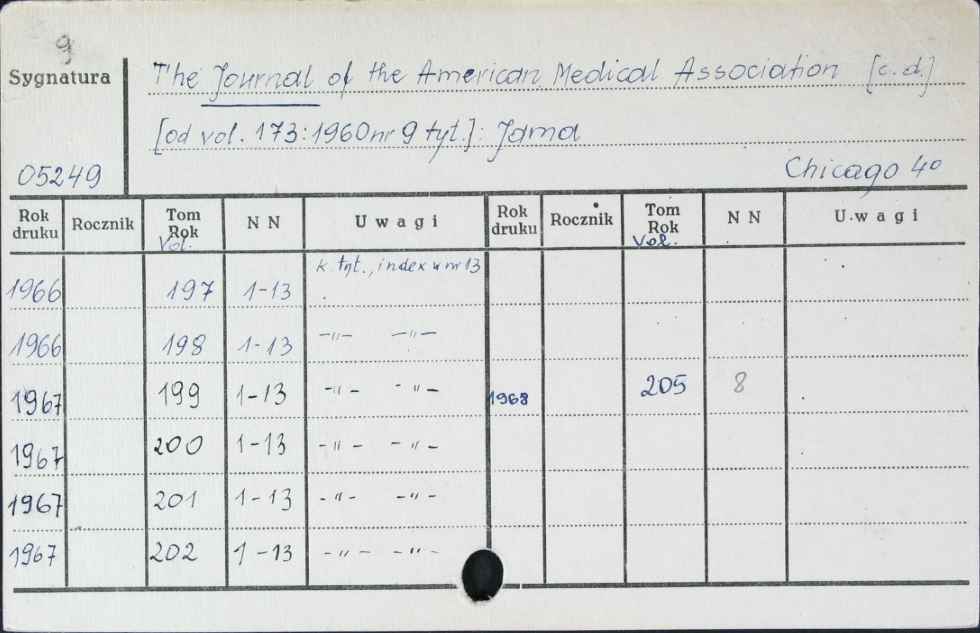 9
Sygnatura
The Journal of the American Medical Association [c.d.]
[od vol. 173:1960 nr 9 tyt.]: Jama
05249
Chicago 4°
Rok druku Rocznik Tom Rok Vol. N N Uwagi Rok druku Rocznik Tom Rok Vol. N N Uwagi
k. tyt., index w nr 13
1966 197 1-13
1966 198 1-13 -"- -"-
1967 199 1-13 -"- -"- 1968 205 8
1967 200 1-13 -"- -"-
1967 201 1-13 -"- -"-
1967 202 1-13 -"- -"-